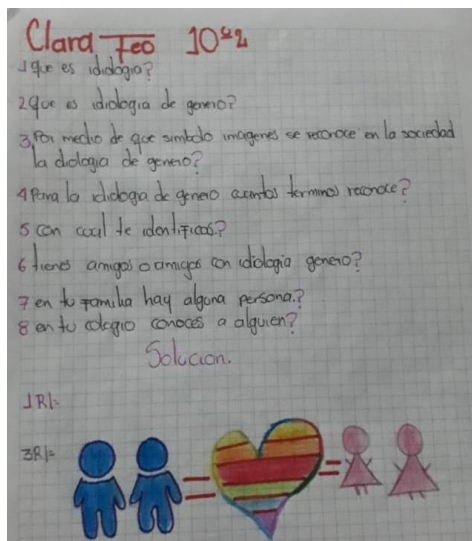 Clara Feo 10º2
1 que es idiologia?
2 que es idiologia de genero?
3, Por medio de que simbolo imagenes se reconoce en la sociedad
la diologia de genero?
4 Para la idiologia de genero cuantos terminos reconoce?
5 con cual te identificas?
6 tienes amigos o amigas con idiologia genero?
7 en tu familia hay alguna persona?
8 en tu colegio conoces a alguien?
Solucion.
1R/=
3R/=